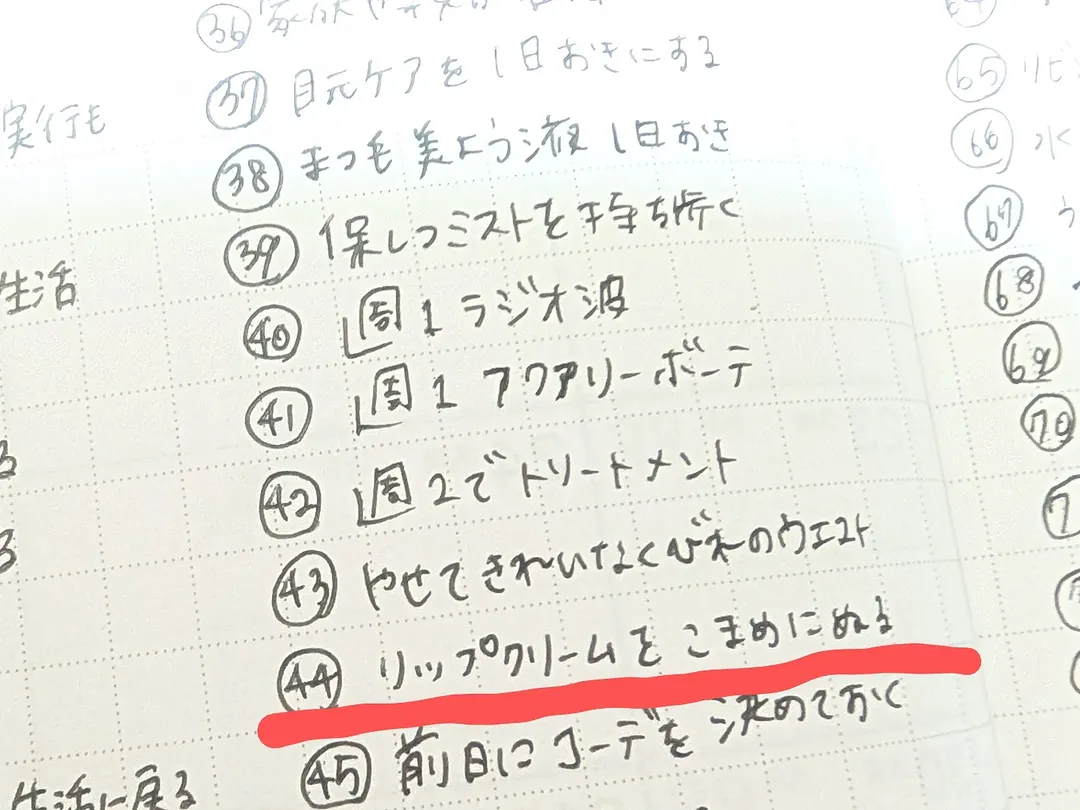 実行も
生活
生活に戻る
㊲ 目元ケアを1日おきにする
㊳ まつ毛美よう液1日おき
㊴ 保しつミストを持ち歩く
㊵ 週1ラジオ波
㊶ 週1アクアリーボーテ
㊷ 週2でトリートメント
㊸ やせてきれいなくびれのウエスト
㊹ リップクリームをこまめにぬる
㊺ 前日にコーデを決めておく
65 リビ
66 水
67 う
68
69
70